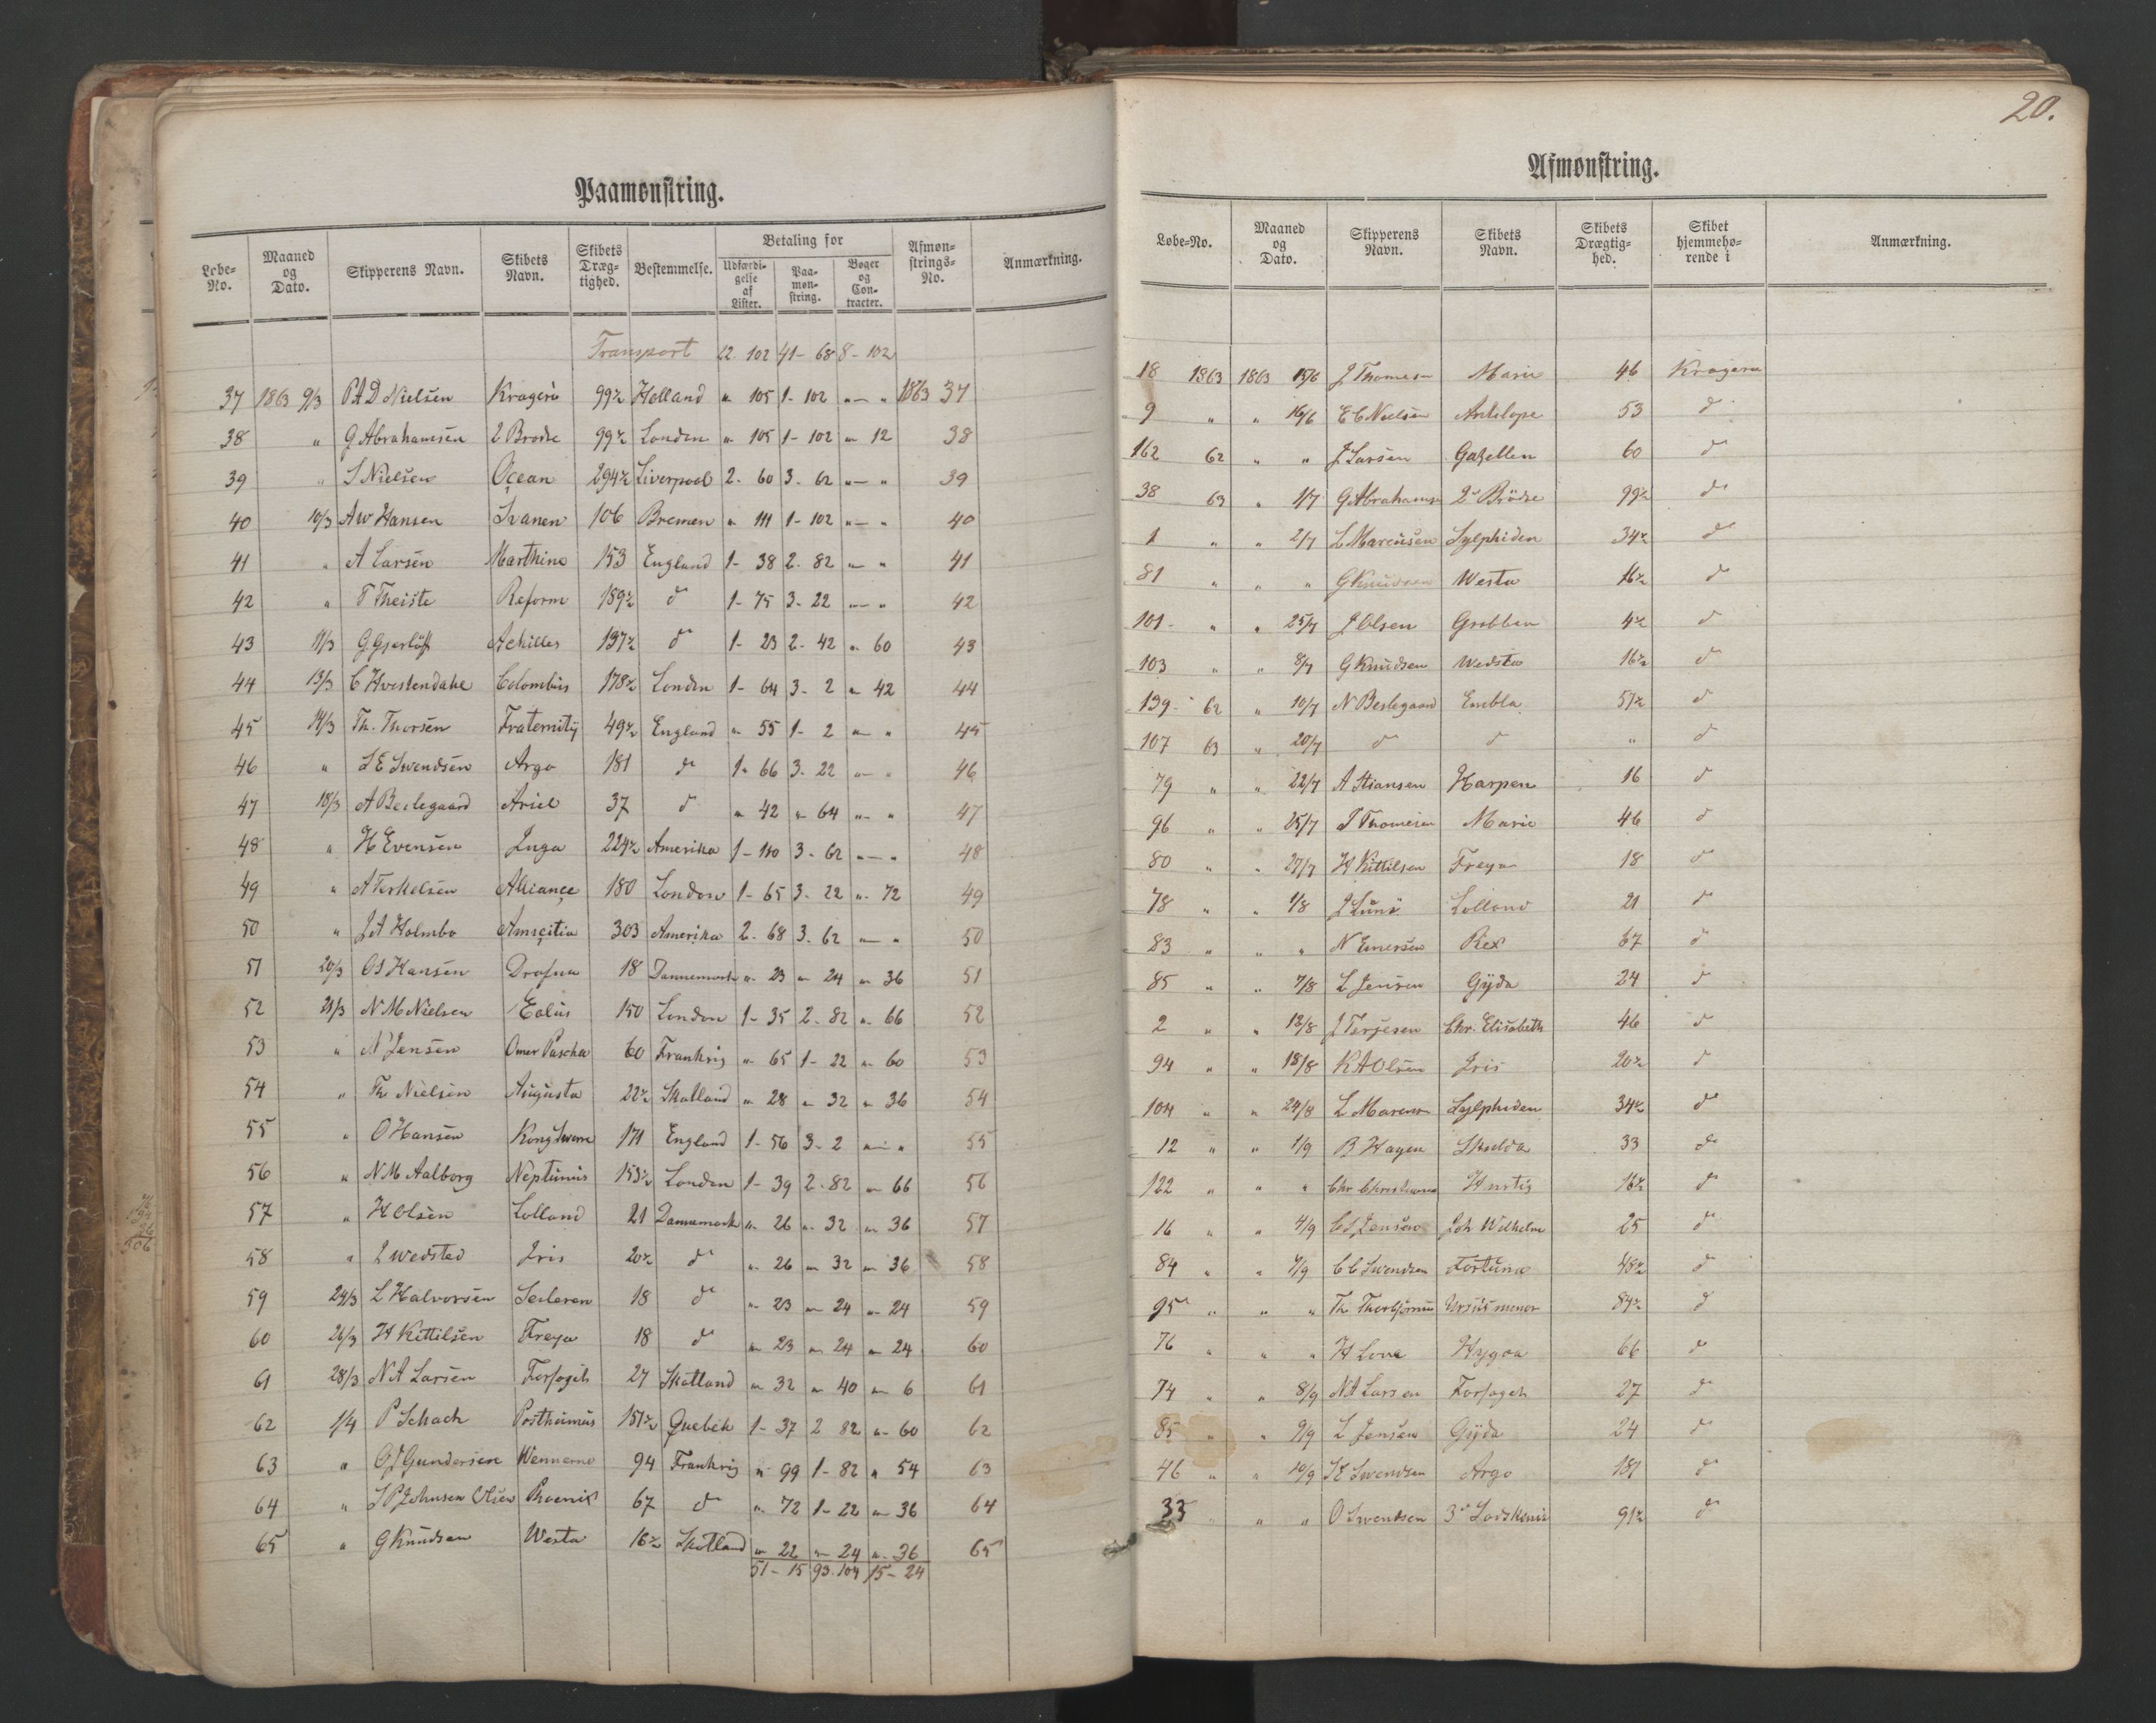 Paamønstring.
Løbe-No. Maaned og Dato. Skipperens Navn. Skibets Navn. Skibets Drægtighed. Bestemmelse. Betaling for Udfærdigelse af Lister. Paamønstring. Bøger og Contracter. Afmønstrings-No. Anmærkning.
Transport 22. 102 41- 68 8- 102
37 1863 9/3 P.A.D Nielsen Kragerö 99½ Holland " 105 1- 102 "-" 1863 37
38 " G Abrahamsen 2 Brødre 99½ London " 105 1- 102 " 12 38
39 " S Nielsen Ocean 294½ Liverpool 2. 60 3. 62 "-" 39
40 10/3 A W Hansen Svanen 106 Bremen " 111 1- 102 "-" 40
41 " A Larsen Marthine 153 England 1- 38 2. 82 "-" 41
42 " T Theiste Reform 189½ do 1- 75 3- 22 "-" 42
43 11/3 G Gjerlöff Achilles 137½ do 1- 23 2- 42 " 60 43
44 13/3 C Hvestendahl Colombus 178½ London 1- 64 3- 2 " 42 44
45 14/3 Th. Thorsen Fraternity 49½ England " 55 1- 2 "-" 45
46 " S E Svendsen Argo 181 do 1- 66 3. 22 "-" 46
47 18/3 A Beslegaard Ariel 37 do " 42 " 64 "-" 47
48 " H Evensen Inga 224½ Amerika 1- 110 3- 62 "-" 48
49 " A Terkelsen Alliance 180 London 1- 65 3. 22 " 72 49
50 " J A Holmbo Amicitia 303 Amerika 2. 68 3. 62 "-" 50
51 20/3 O S Hansen Drafna 18 Dannemark " 23 " 24 " 36 51
52 21/3 N M Nielsen Eolus 150 London 1- 35 2- 82 " 66 52
53 " N Jensen Omer Pascha 60 Frankrig " 65 1- 22 " 60 53
54 " Th Nielsen Augusta 22½ Skotland " 28 " 32 " 36 54
55 " O Hansen Kong Sverre 171 England 1- 56 3- 2 "-" 55
56 " N M Aalborg Neptunus 153½ London 1- 39 2- 82 " 66 56
57 " H Olsen Lolland 21 Dannemark " 26 " 32 " 36 57
58 " J Wedsted Iris 20½ do " 26 " 32 " 36 58
59 24/3 L Halvorsen Seileren 18 do " 23 " 24 " 24 59
60 26/3 H Kittilsen Freya 18 do " 23 " 24 " 24 60
61 28/3 N A Larsen Forsøget 27 Skotland " 32 " 40 " 6 61
62 1/4 P Schach Posthumus 151½ Quebek 1- 37 2 82 " 60 62
63 " O J Gundersen Wennerne 94 Frankrig " 99 1- 82 " 54 63
64 " S P Johnsen Olsen Phoenix 67 do " 72 1- 22 " 36 64
65 " G Knudsen Westa 16½ Skotland " 22 " 24 " 36 65
51- 15 93. 104 15- 24
20.
Afmønstring.
Løbe-No. Maaned og Dato. Skipperens Navn. Skibets Navn. Skibets Drægtighed. Skibet hjemmehørende i Anmærkning.
18 1863 1863 15/6 J Thomesen Marie 46 Kragerø
9 " " 16/6 E C Nielsen Antelope 53 do
162 62 " " J Larsen Gazellen 60 do
38 63 " 1/7 G Abrahamsen 2de Brödre 99½ do
1 " " 2/7 L Marcusen Sylphiden 34½ do
81 " " " G Knudsen Westa 16½ do
101 " " 25/7 J Olsen Grebben 4½ do
103 " " 8/7 G Knudsen Wedsta 16½ do
139 62 " 10/7 N Beslegaard Embla 51½ do
107 63 " 20/7 do do " do
79 " " 22/7 A Stiansen Harpen 16 do
96 " " 25/7 J Thomesen Marie 46 do
80 " " 27/7 H Kittilsen Freya 18 do
78 " " 1/8 J Lund Lolland 21 do
83 " " " N Enersen Rex 37 do
85 " " 7/8 L Jensen Gyda 24 do
2 " " 12/8 J Terjesen Chr. Elisabeth 46 do
94 " " 18/8 K A Olsen Iris 20½ do
104 " " 24/8 L Marcusen Sylphiden 34½ do
12 " " 1/9 B Hagen Skulda 33 do
122 " " " Chr Christensen Hurtig 16½ do
16 " " 4/9 C S Jensen Joh Wilhelm 25 do
84 " " 7/9 C C Svendsen Fortuna 48½ do
95 " " " Th Thorbjørnsen Ursus menor 84½ do
76 " " " H Love Hygea 66 do
74 " " 8/9 N A Larsen Forsøget 27 do
85 " " 9/9 L Jensen Gyda 24 do
46 " " 10/9 S E Svendsen Argo 181 do
33 " " " O Svendsen 3de Sødskende 91½ do